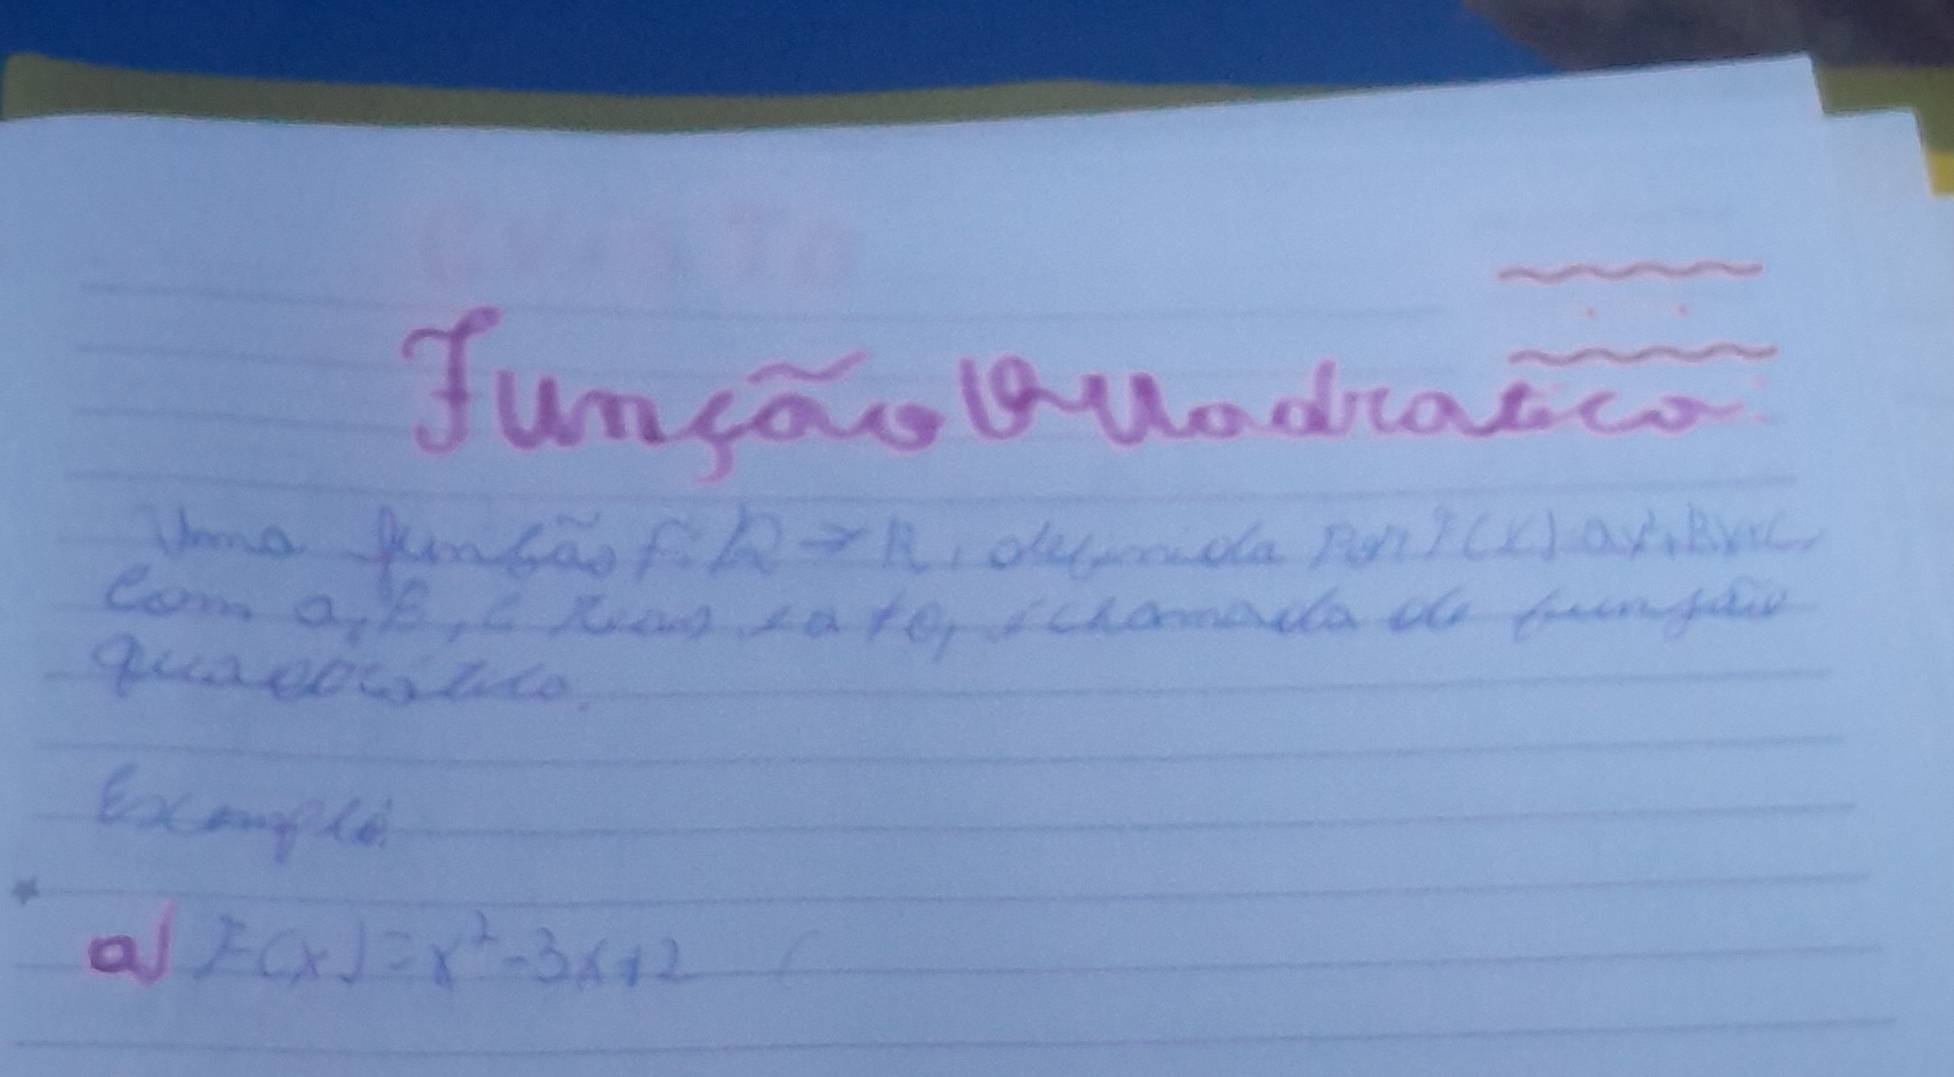 Função Quadratica
Uma função F: R → R, definida por f(x) ax², Bx+C,
Com a, B, C reais e a ≠ 0, é chamada de função
quadrática.
Exemplo
a) F(x) = x² - 3x + 2